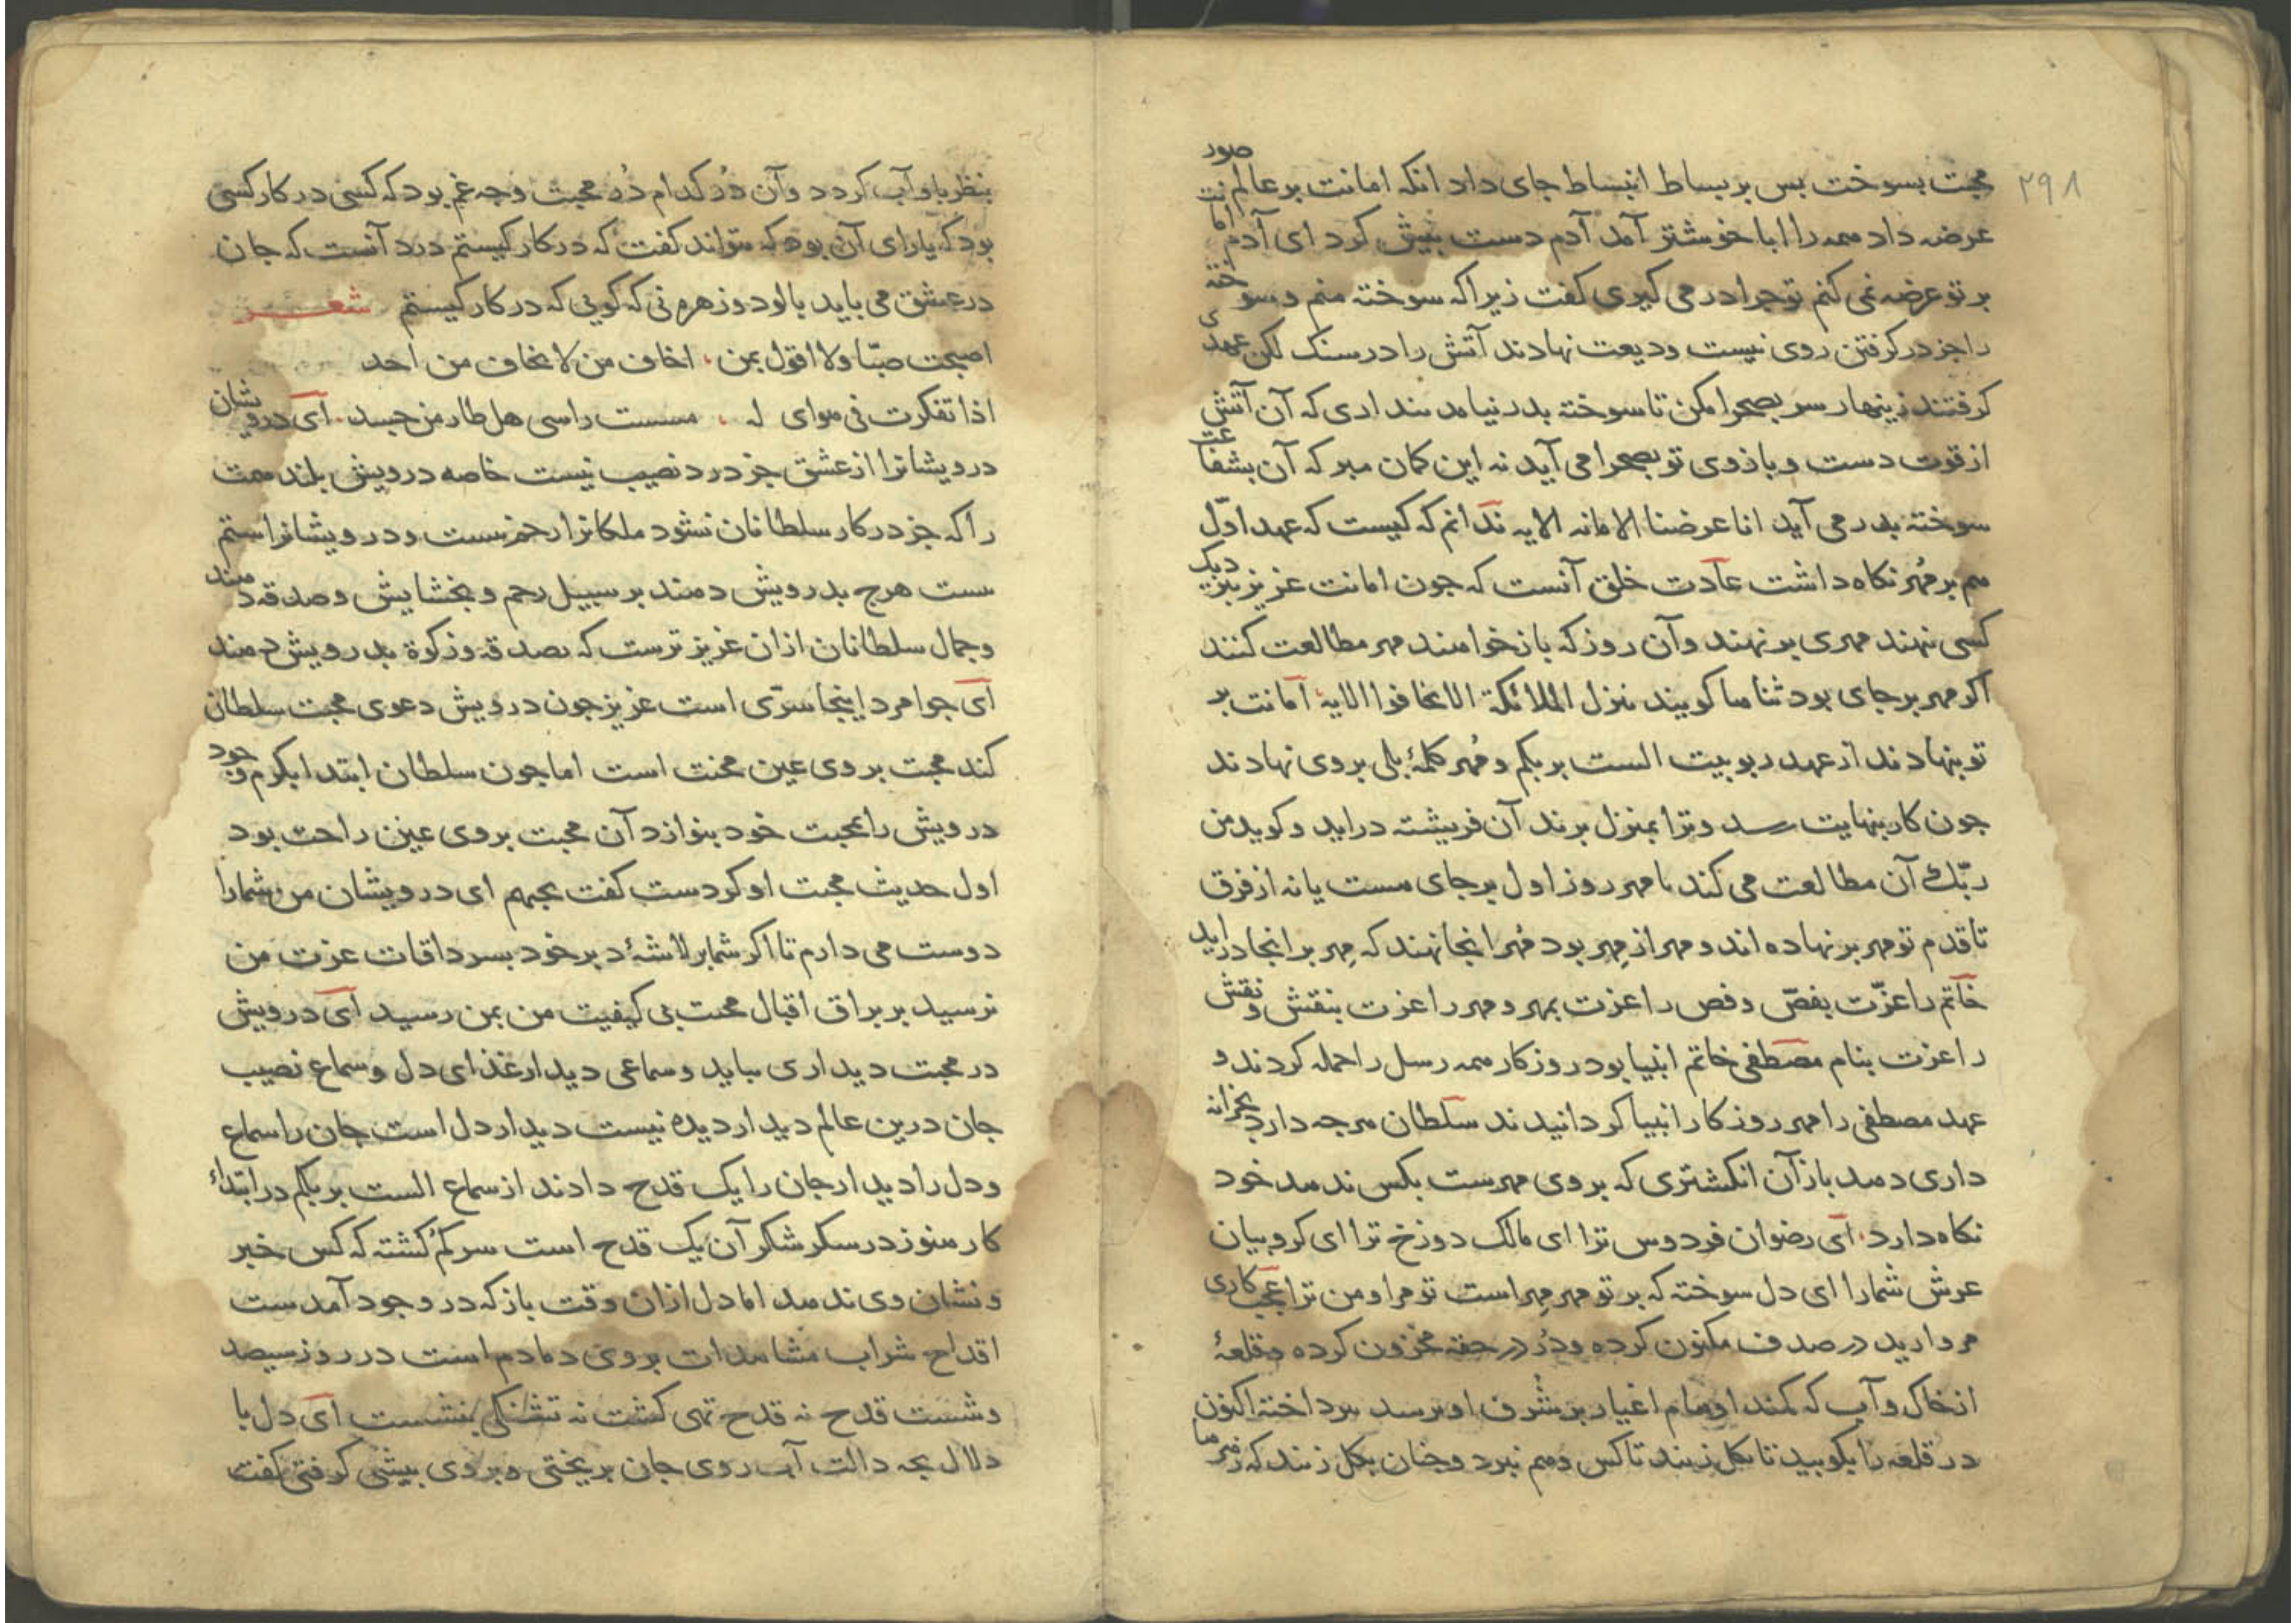 ۲۹۸
محبت بسوخت بس بر بساط انبساط جای داد انکه امانت بر عالم صور
عرضه داد همه را ابا خوشتر آمد آدم دست بیش کرد ای آدم امانت
بر تو عرضه نمی کنم تو چرا در می کیری کفت زیرا که سوخته منم و سوخته
را جز در کرفتن روی نیست ودیعت نهادند آتش را در سنک لکن عهدی
کرفتند زینهار سر بصحرا مکن تا سوخته بدر نیامد بنداری که آن آتش
از قوت دست و بازوی تو بصحرا می آید نه این کمان مبر که آن بشفاعت
سوختۀ بدر می آید انا عرضنا الامانه الایه ندانم که کیست که عهد اوّل
هم بر مُهر نکاه داشت عادت خلق آنست که جون امانت عزیز بنزدیک
کسی نهند مهری بر نهند وآن روز که باز خواهند مهر مطالعت کنند
اکر مهر بر جای بود ثناها کویند تنزل الملائکة الا تخافوا الایه امانت بر
تو بنهادند از عهد ربوبیت الست بربکم و مُهر کلمۀ بلی بر وی نهادند
جون کار بنهایت رسد وترا بمنزل برند آن فریشته دراید و کوید من
ربّک آن مطالعت می کند تا مهر روز اول بر جای هست یا نه از فرق
تا قدم تو مهر بر نهاده اند و مهر از مِهر بود مُهر انجا نهند که مِهر بر انجا دراید
خاتم را عزّت بفصّ و فص را عزت بمهر و مهر را عزت بنقش و نقش
را عزت بنام مصطفی خاتم انبیا بود روزکار همه رسل را حمله کردند و
عهد مصطفی را مهر روزکار انبیا کردانیدند سلطان هرچه دارد بخزانه
داری دهد باز آن انکشتری که بر وی مهرست بکس ندهد خود
نکاه دارد. ای رضوان فردوس ترا ای مالک دوزخ ترا ای کروبیان
عرش شما را ای دل سوخته که بر تو مهر مِهر است تو مرا و من ترا عجب کاری
مروارید در صدف مکنون کرده و دُر در حقه مخزون کرده و قلعۀ
از خاک و آب که کمند اوهام اغیار بر شرف او نرسد برداخته اکنون
در قلعه را بکوبید تا بکل زنند تا کس وهم نبرد و چنان بکل زنند که زهرها
بنظر با وآب کردد وآن دُرّ کدام دُرّ محبت وچه غم بود که کسی در کار کسی
بود که یارای آن بود که بتواند کفت که در کار کیستم درد آنست که جان
در عشق می باید بالود و زهره نی که کویی که در کار کیستم شعر
اصبحت صبّا ولا اقول بمن . اخاف من لا یخاف من احد
اذا تفکرت فی هوای له . مسست راسی هل طار من جسد . ای درویشان
درویشانرا از عشق جز درد نصیب نیست خاصه درویش بلند همت
را که جز در کار سلطانان نشود ملکانرا رحم نیست و درویشانرا ستم
ست هرچ بدرویش دهند بر سبیل رحم و بخشایش و صدقه دهند
وجمال سلطانان ازان عزیز ترست که بصدقه و زکوة بدرویش دهند
ای جوامرد اینجا سرّی است عزیز جون درویش دعوی محبت سلطان
کند محبت بر وی عین محنت است اما جون سلطان ابتدا بکرم وجود
درویش را بمحبت خود بنوازد آن محبت بر وی عین راحت بود
اول حدیث محبت او کردست کفت یحبهم ای درویشان من شما را
دوست می دارم تا اکر شما بر لاشۀ دبر خود بسرداقات عزت من
نرسید بر براق اقبال محبت بی کیفیت من بمن رسید ای درویش
در محبت دیداری بباید و سماعی دیدار غذای دل و سماع نصیب
جان درین عالم دیدار دیده نیست دیدار دل است جان را سماع
ودل را دیدار جان را یک قدح دادند از سماع الست بربکم در ابتداء
کار هنوز در سکر شکر آن یک قدح است سرکم کشته که کس خبر
ونشان وی ندهد اما دل ازان وقت باز که در وجود آمدست
اقداح شراب مشاهدات بر وی دمادم است در روز سیصد
وشست قدح نه قدح تهی کشت نه تشنکی بنشست ای دل با
دلال بچه دالت آب روی جان بریختی و بر وی بیشی کرفتی کفت